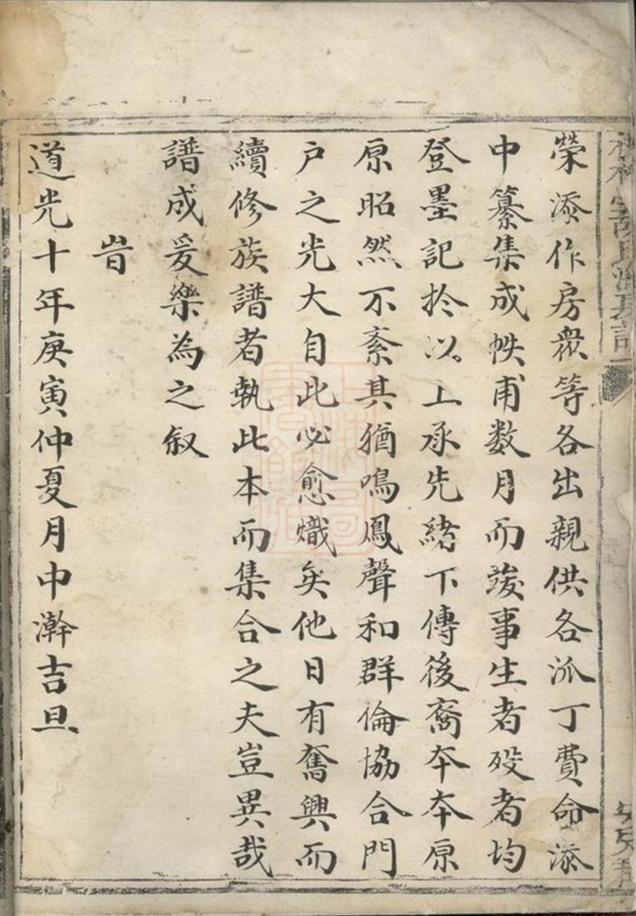 榮添作房衆等各出親供各派丁費命添
中纂集成帙甫数月而竣事生者殁者均
登墨記扵以上承先緒下傳後裔夲夲原
原昭然不紊其猶鳴鳳聲和群倫協合門
户之光大自此必愈熾矣他日有奮興而
續修族譜者執此本而集合之夫豈異哉
譜成爰樂為之叙
旹
道光十年庚寅仲夏月中澣吉旦